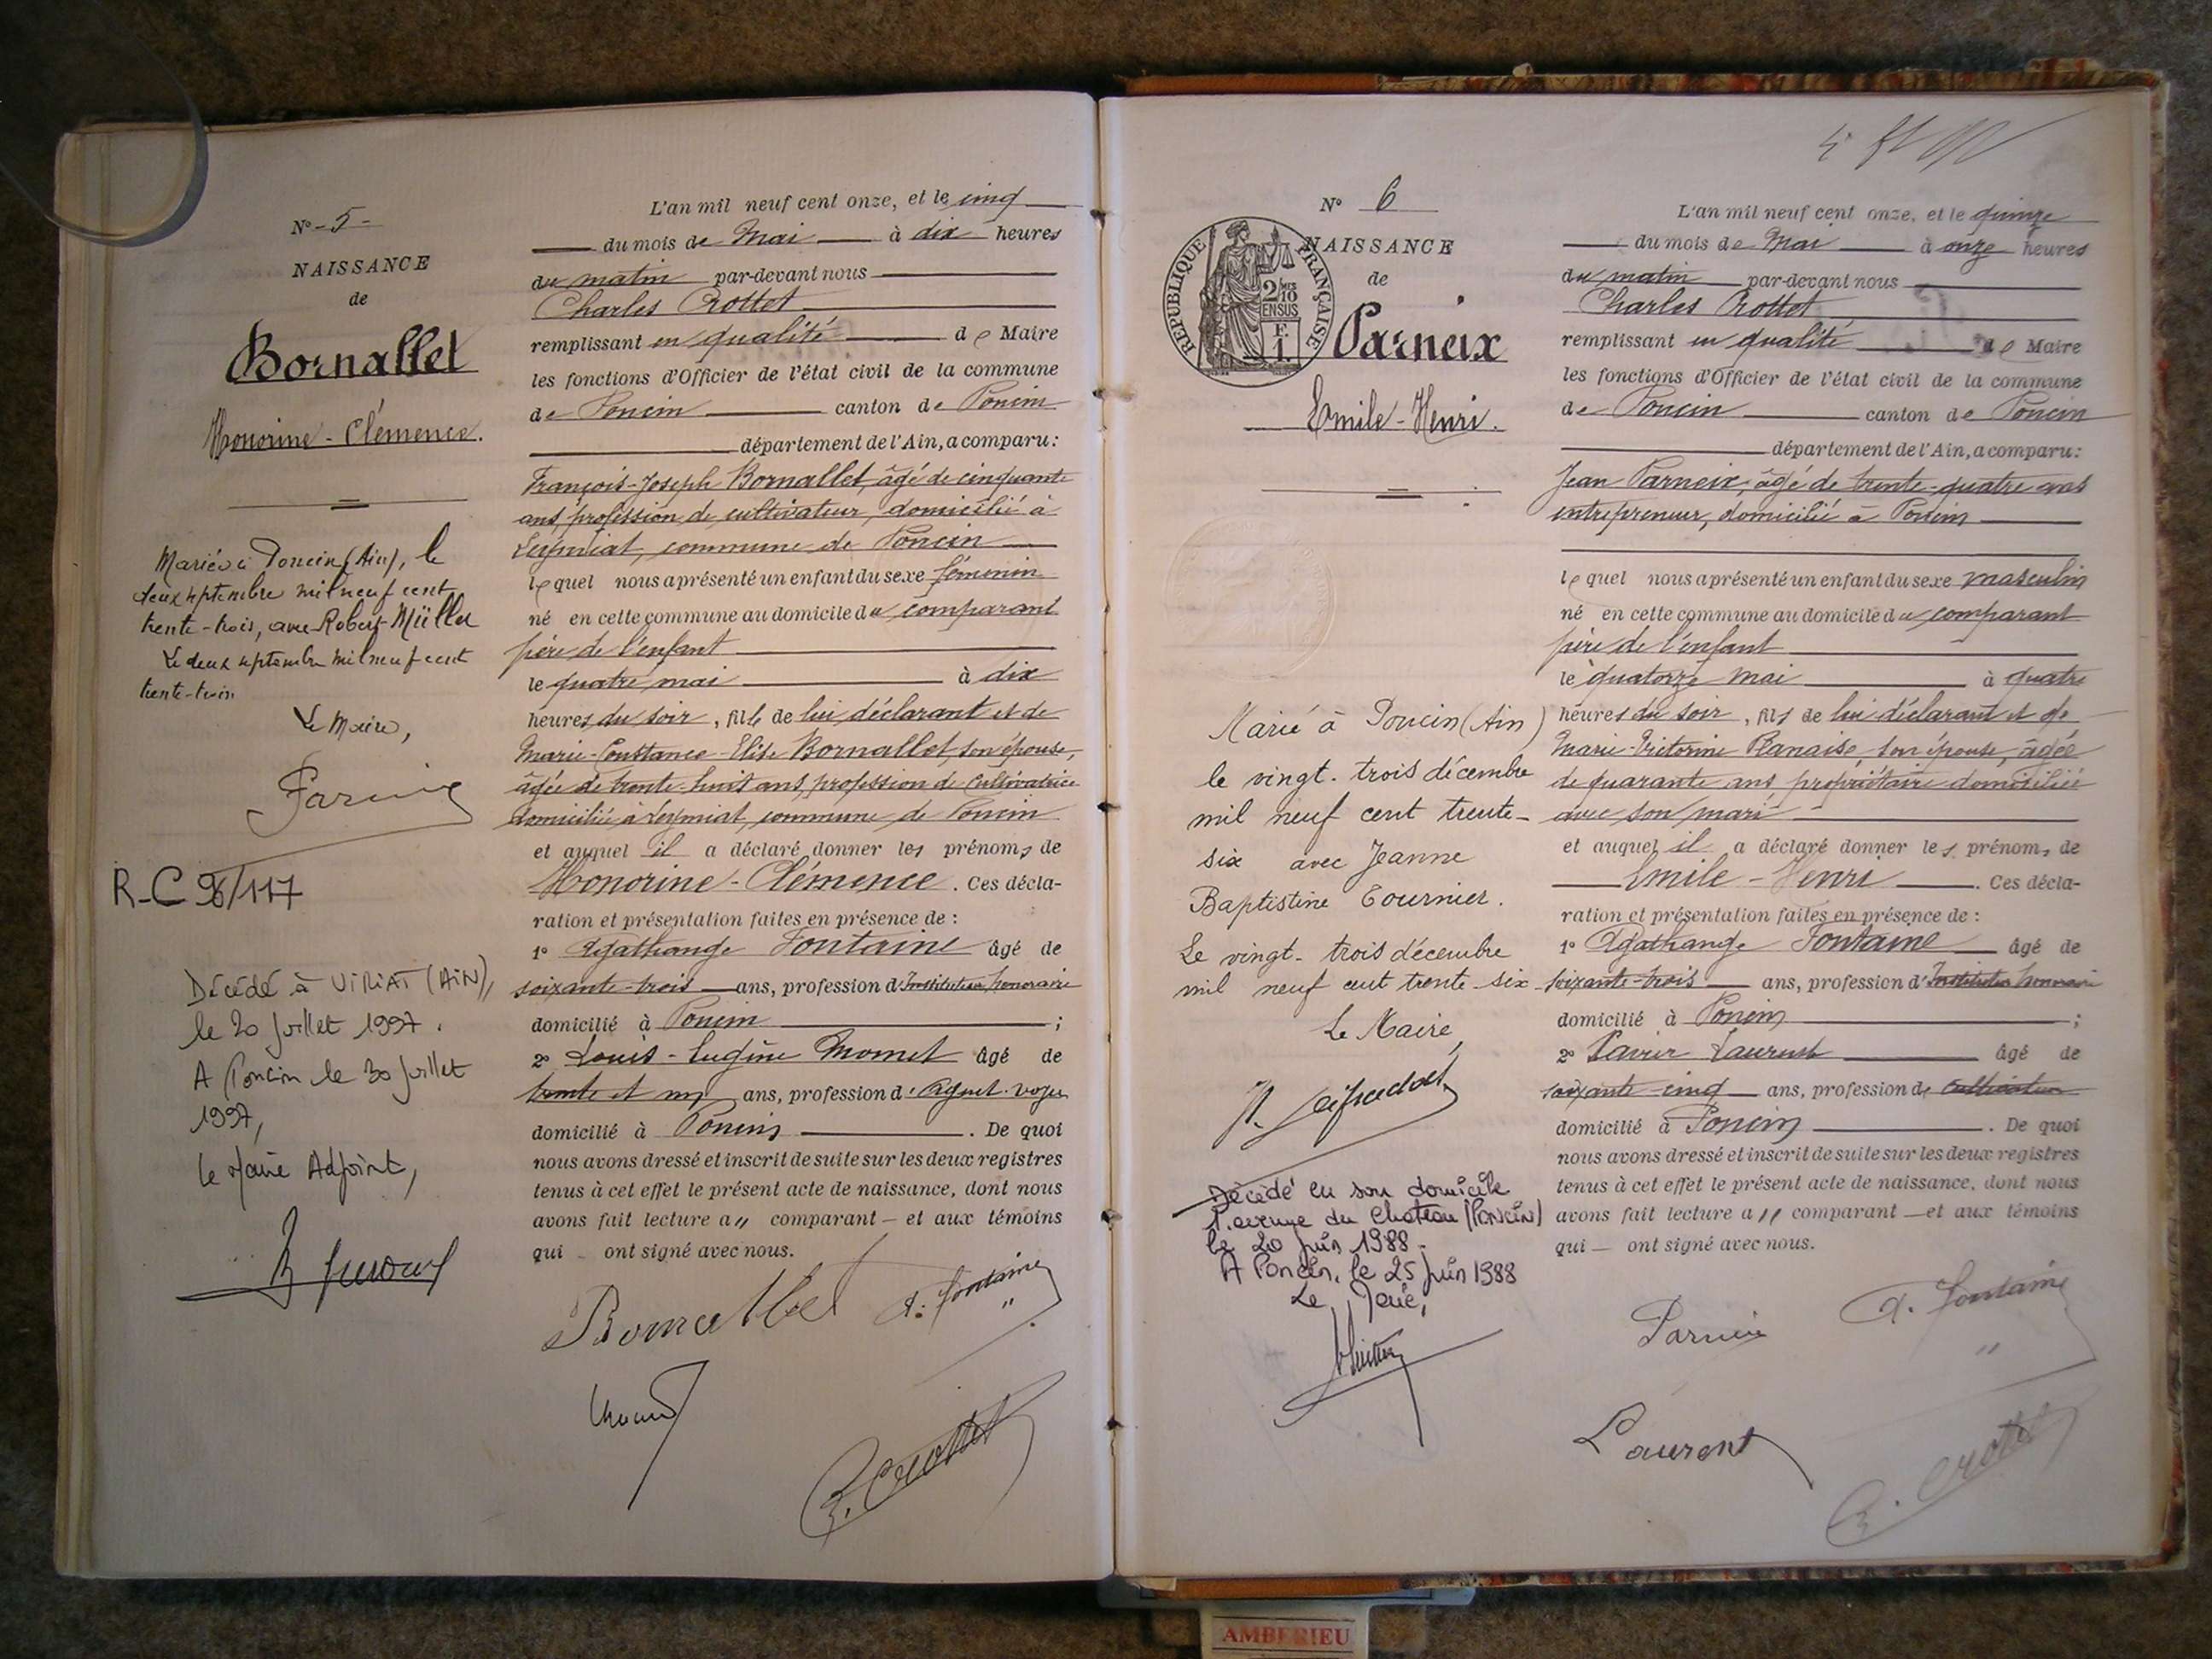 N° - 5 -
NAISSANCE
de
Bornallet
Honorine - Clémence.
Mariée à Poncin (Ain), le
deux septembre mil neuf cent
trente-trois, avec Robert Müller
Le deux septembre mil neuf cent
trente-trois
Le Maire,
R-C 96/117
Décédé à VIRIAT (AIN),
le 20 Juillet 1997.
A Poncin le 30 Juillet
1997,
le Maire Adjoint,
L'an mil neuf cent onze, et le cinq
du mois de Mai à dix heures
du matin par-devant nous
Charles Crottet
remplissant en qualité de Maire
les fonctions d'Officier de l'état civil de la commune
de Poncin canton de Poncin
département de l'Ain, a comparu:
François-Joseph Bornallet, âgé de cinquante
ans, profession de cultivateur, domicilié à
Leymiat, commune de Poncin
lequel nous a présenté un enfant du sexe féminin
né en cette commune au domicile du comparant
père de l'enfant
le quatre mai à dix
heures du soir, fille de lui déclarant et de
Marie-Constance-Elise Bornallet, son épouse,
âgée de trente-huit ans, profession de cultivatrice
domiciliée à Leymiat, commune de Poncin
et auquel il a déclaré donner les prénoms de
Honorine - Clémence. Ces décla-
ration et présentation faites en présence de :
1° Agathange Fontaine âgé de
soixante-trois ans, profession d'Instituteur honoraire
domicilié à Poncin ;
2° Louis - Eugène Momet âgé de
trente et un ans, profession d'Agent-voyer
domicilié à Poncin . De quoi
nous avons dressé et inscrit de suite sur les deux registres
tenus à cet effet le présent acte de naissance, dont nous
avons fait lecture au comparant — et aux témoins
qui — ont signé avec nous.
Bornallet A. Fontaine
C. Crottet
N° 6
NAISSANCE
de
REPUBLIQUE FRANÇAISE
2/10 EN SUS
Parneix
Emile - Henri.
Marié à Poncin (Ain)
le vingt-trois décembre
mil neuf cent trente-
six avec Jeanne
Baptistine Tournier.
Le vingt-trois décembre
mil neuf cent trente-six
Le Maire,
Décédé en son domicile
1. avenue du Chateau (PONCIN)
le 20 Juin 1988.
A Poncin, le 25 Juin 1988
Le Maire,
L'an mil neuf cent onze, et le quinze
du mois de Mai à onze heures
du matin par-devant nous
Charles Crottet
remplissant en qualité de Maire
les fonctions d'Officier de l'état civil de la commune
de Poncin canton de Poncin
département de l'Ain, a comparu:
Jean Parneix, âgé de trente-quatre ans
entrepreneur, domicilié à Poncin
lequel nous a présenté un enfant du sexe masculin
né en cette commune au domicile du comparant
père de l'enfant
le quatorze mai à quatre
heures du soir, fils de lui déclarant et de
Marie-Victorine Planaise, son épouse, âgée
de quarante ans, propriétaire domiciliée
avec son mari
et auquel il a déclaré donner les prénoms de
Emile - Henri . Ces décla-
ration et présentation faites en présence de :
1° Agathange Fontaine âgé de
soixante-trois ans, profession d'Instituteur honoraire
domicilié à Poncin ;
2° Xavier Laurent âgé de
soixante-cinq ans, profession de cultivateur
domicilié à Poncin . De quoi
nous avons dressé et inscrit de suite sur les deux registres
tenus à cet effet le présent acte de naissance, dont nous
avons fait lecture au comparant — et aux témoins
qui — ont signé avec nous.
Parneix A. Fontaine
Laurent
C. Crottet
AMBERIEU